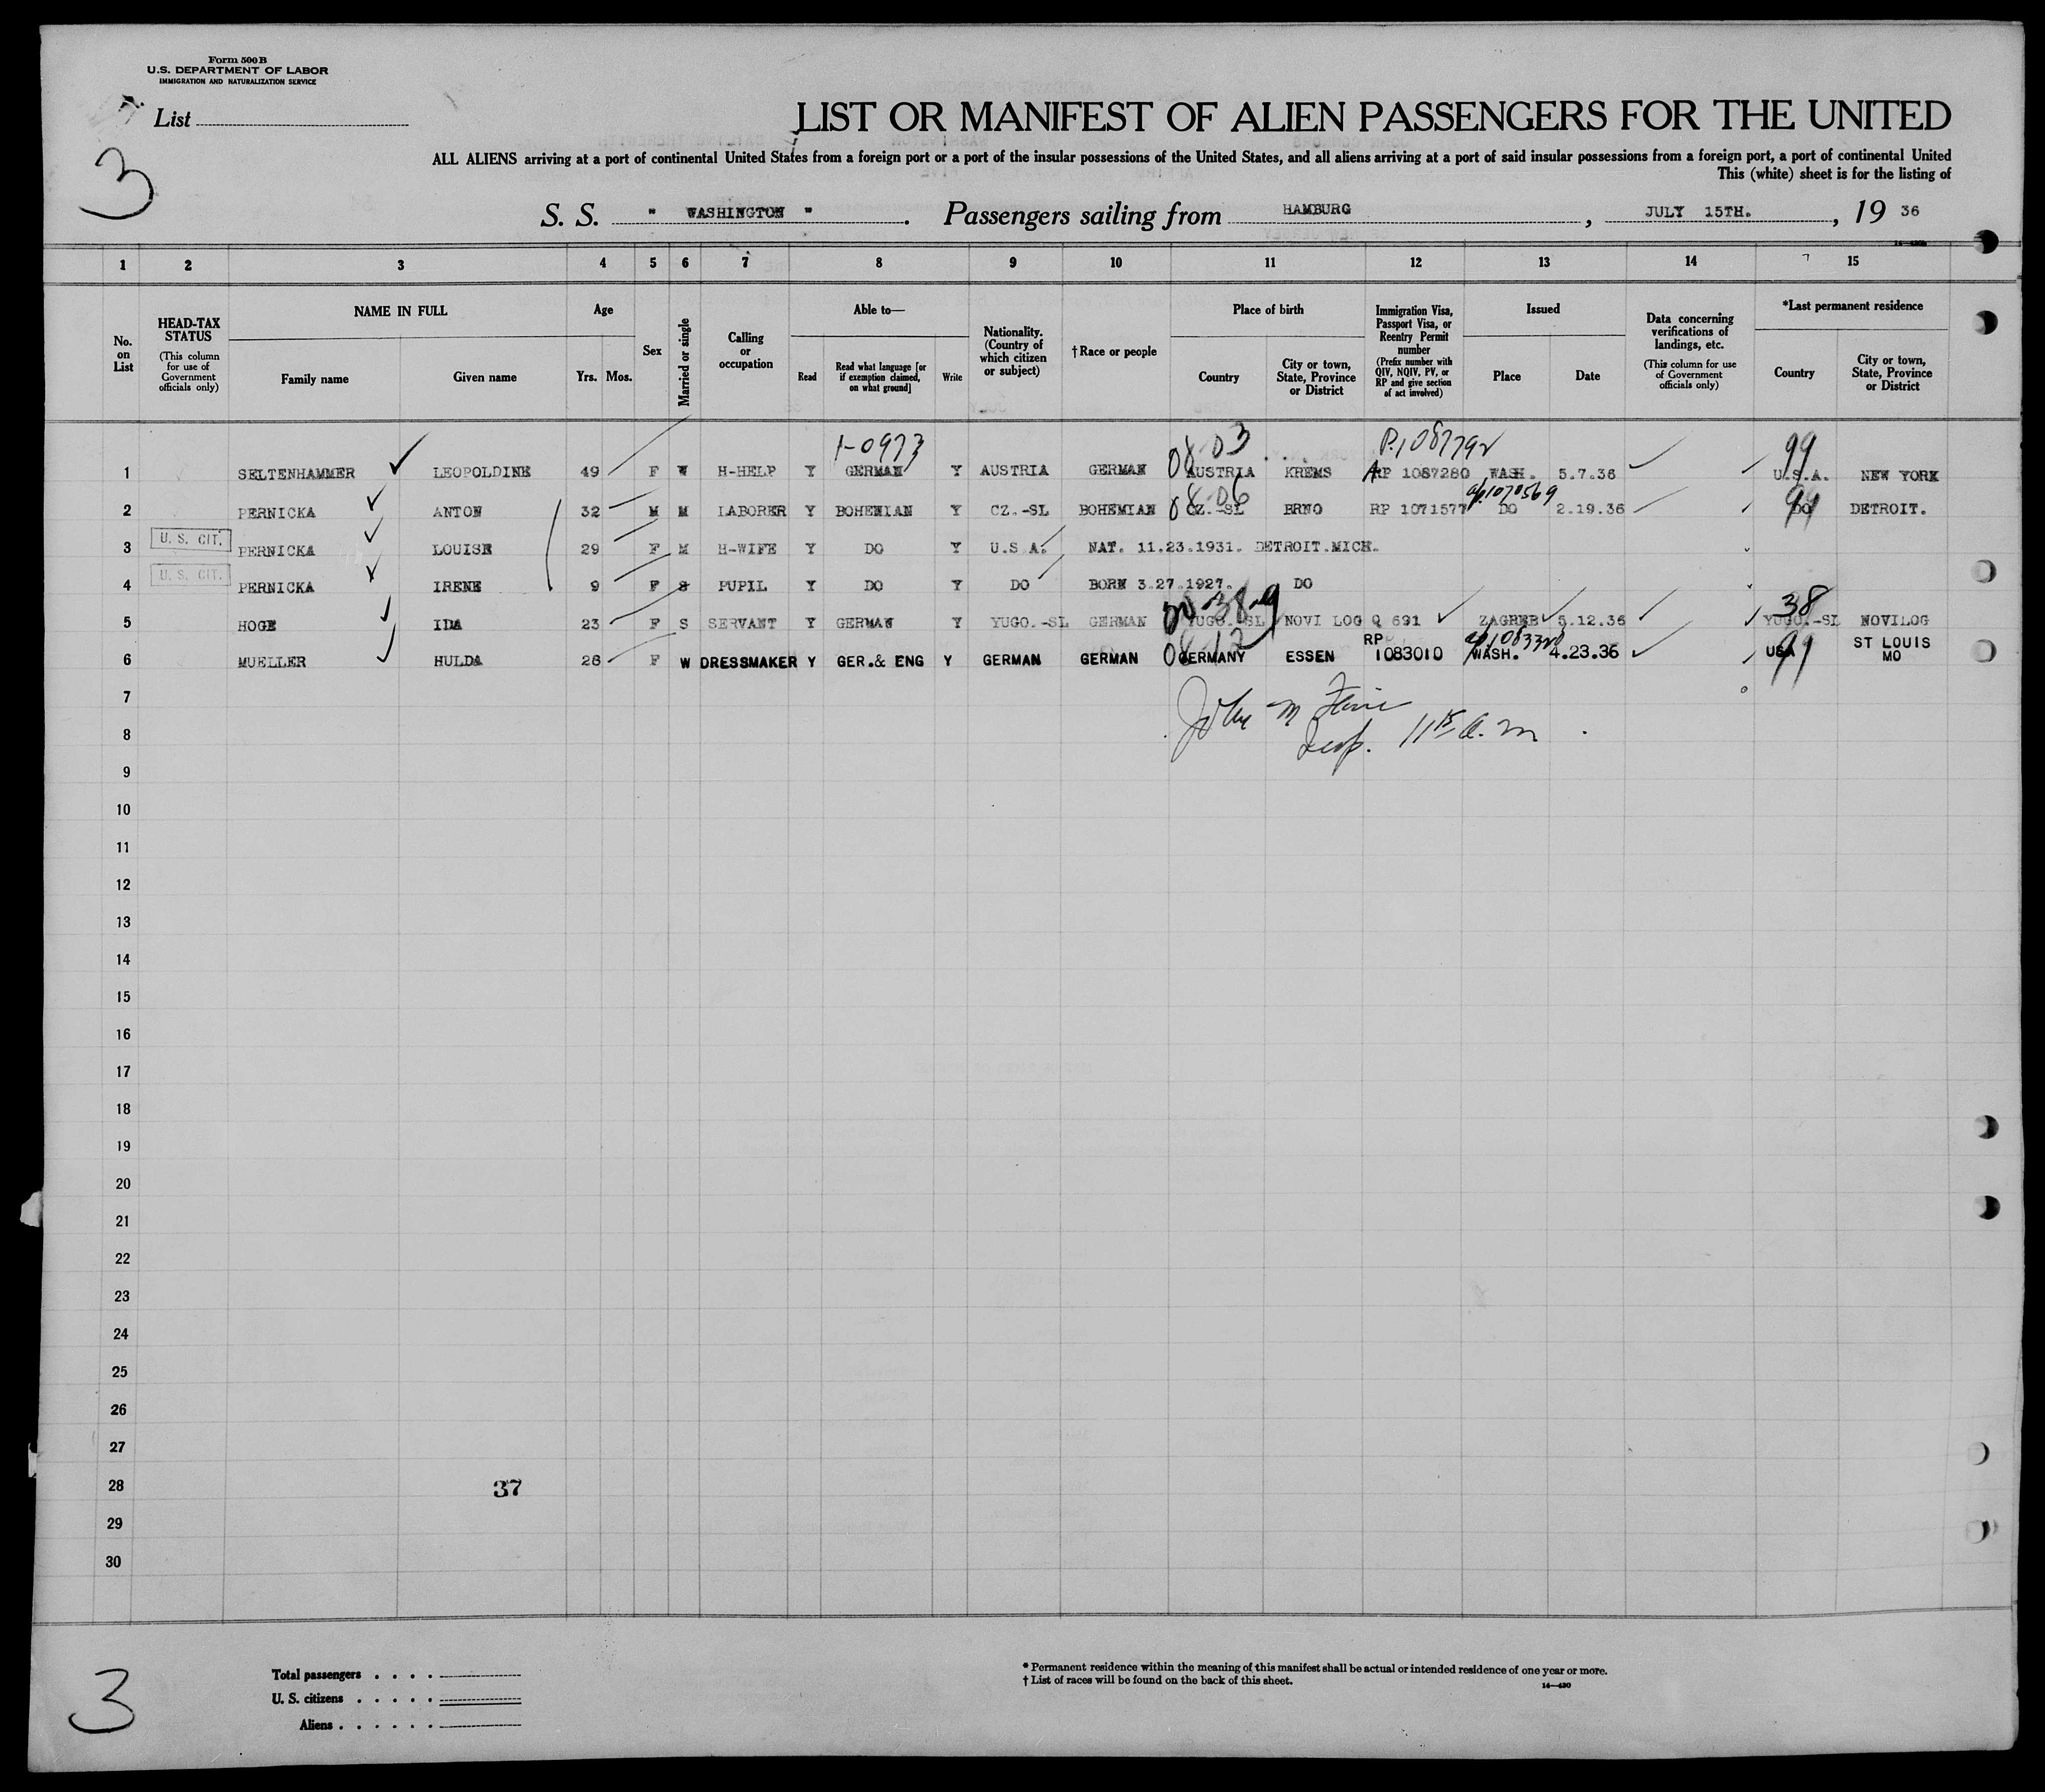 Form 500 B
U.S. DEPARTMENT OF LABOR
IMMIGRATION AND NATURALIZATION SERVICE
List
3
LIST OR MANIFEST OF ALIEN PASSENGERS FOR THE UNITED
ALL ALIENS arriving at a port of continental United States from a foreign port or a port of the insular possessions of the United States, and all aliens arriving at a port of said insular possessions from a foreign port, a port of continental United
This (white) sheet is for the listing of
S. S. " WASHINGTON " . Passengers sailing from HAMBURG , JULY 15TH. , 19 36
1 2 3 4 5 6 7 8 9 10 11 12 13 14 15
No. on List
HEAD-TAX STATUS
(This column for use of Government officials only)
NAME IN FULL
Family name Given name
Age
Yrs. Mos.
Sex
Married or single
Calling or occupation
Able to—
Read
Read what language [or if exemption claimed, on what ground]
Write
Nationality. (Country of which citizen or subject)
† Race or people
Place of birth
Country
City or town, State, Province or District
Immigration Visa, Passport Visa, or Reentry Permit number
(Prefix number with QIV, NQIV, PV, or RP and give section of act involved)
Issued
Place Date
Data concerning verifications of landings, etc.
(This column for use of Government officials only)
*Last permanent residence
Country
City or town, State, Province or District
1-0973 08-03 P.1087792 99
1 SELTENHAMMER LEOPOLDINE 49 F W H-HELP Y GERMAN Y AUSTRIA GERMAN AUSTRIA KREMS RP 1087280 WASH. 5.7.36 U.S.A. NEW YORK
08-06 ap.1070569 99
2 PERNICKA ANTON 32 M M LABORER Y BOHEMIAN Y CZ.-SL BOHEMIAN CZ.-SL BRNO RP 1071577 DO 2.19.36 DO DETROIT.
U. S. CIT.
3 PERNICKA LOUISE 29 F M H-WIFE Y DO Y U.S A. NAT. 11.23.1931. DETROIT.MICH.
U. S. CIT.
4 PERNICKA IRENE 9 F S PUPIL Y DO Y DO BORN 3.27.1927. DO
38
5 HOGE IDA 23 F S SERVANT Y GERMAN Y YUGO.-SL GERMAN YUGO.-SL NOVI LOG Q 691 ZAGREB 5.12.36 YUGO.-SL NOVILOG
08-12 99
6 MUELLER HULDA 28 F W DRESSMAKER Y GER.& ENG Y GERMAN GERMAN GERMANY ESSEN RP 1083010 WASH. 4.23.36 USA ST LOUIS MO
7
John M
8
Insp. 11 15 a.m
9
10
11
12
13
14
15
16
17
18
19
20
21
22
23
24
25
26
27
28 37
29
30
3
Total passengers . . . .
U. S. citizens . . . . .
Aliens . . . . . .
* Permanent residence within the meaning of this manifest shall be actual or intended residence of one year or more.
† List of races will be found on the back of this sheet.
14—430